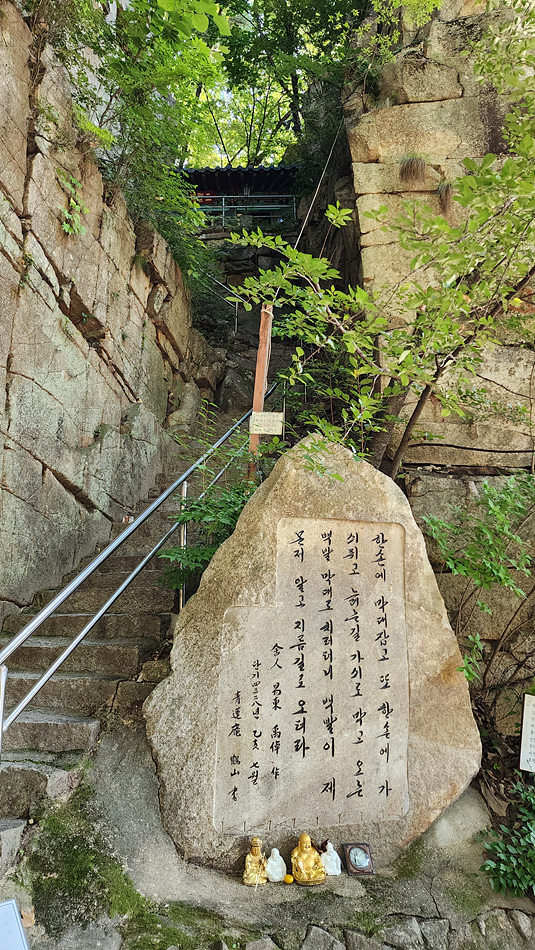 한손에 막대잡고 또 한손에 가
싀쥐고 늙는길 가싀로 막고 오는
백발 막대로 치려터니 백발이 제
몬저 알고 지름길로 오더라
舍人 易東 禹倬 作
단기 四三二八년 乙亥 七월
靑蓮庵 鶴山 書